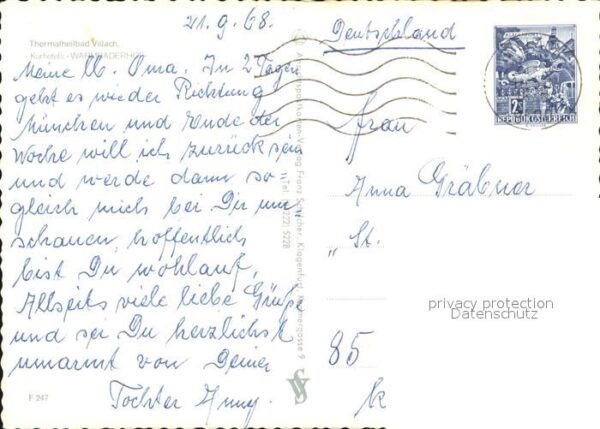 21.9.68.
Deutschland
Thermalheilbad Villach,
Kurhotel: WARMBADERHOF
Meine lb. Oma. In 2 Tagen
geht es wieder Richtung
München und Ende der
Woche will ich zurück sein
und werde dann so=
gleich mich bei Dir um
schauen, hoffentlich
bist Du wohlauf.
Allseits viele liebe Grüße
und sei Du herzlichst
umarmt von Deiner
Tochter
F 247
Verlag Franz Schilcher, Klagenfurt,
Tel.
5228
2 S
REPUBLIK ÖSTERREICH
Frau
Anna Gräbner
„St.
85
privacy protection
Datenschutz